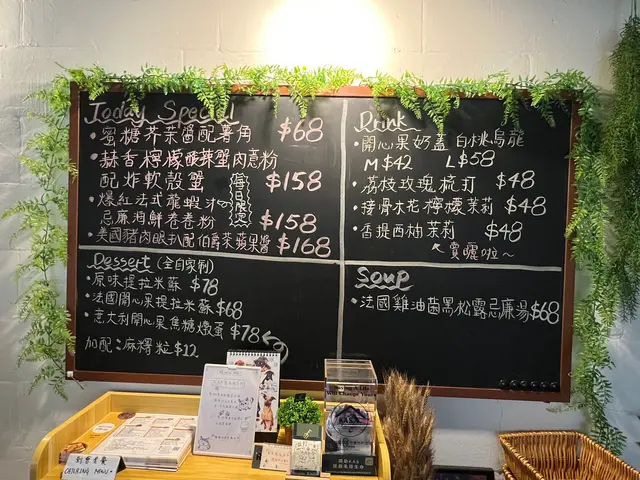 Today Special
•蜜糖芥茉醬配薯角 $68
檸檬酸菜蟹肉意粉
配炸軟殼蟹 $158
每日限定
•爆紅法式龍蝦汁
忌廉海鮮卷卷粉 $158
•美國豬肉眼扒配伯爵茶蘋果醬 $168
Drink
•開心果奶蓋 白桃烏龍
M $42 L $58
•荔枝玫瑰梳打 $48
•接骨木花檸檬茉莉 $48
•香提西柚茉莉 $48
賣曬啦～
Dessert (全自家制)
•原味提拉米蘇 $78
•法國開心果提拉米蘇 $68
•意大利開心果焦糖燉蛋 $78
加配：麻糬粒 $12
Soup
•法國雞油菌黑松露忌廉湯 $68
到會套餐
CATERING MENU